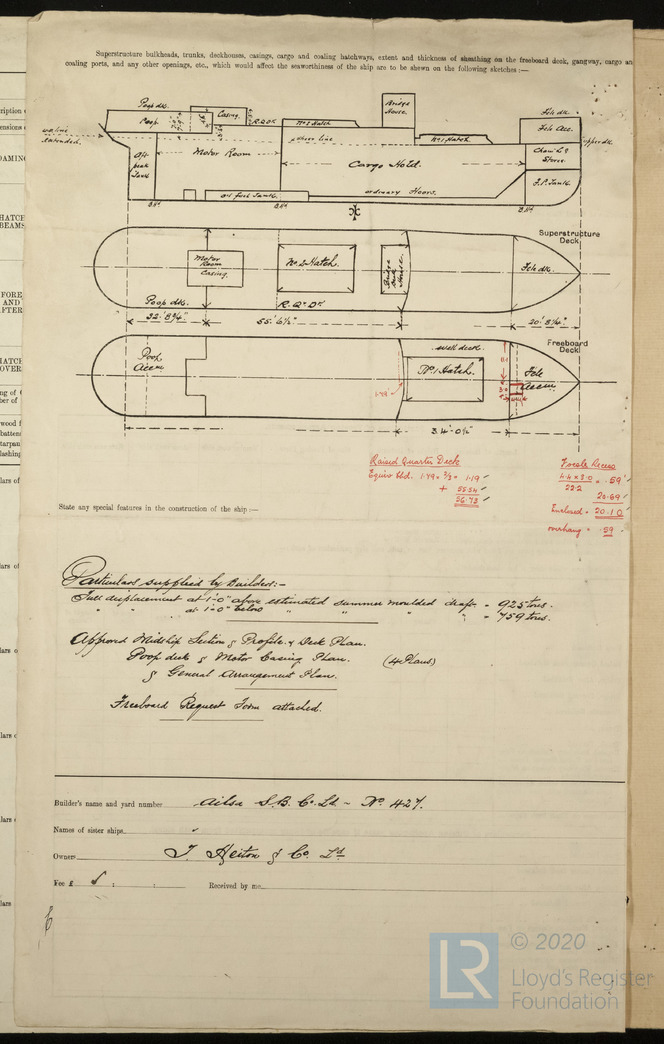 Superstructure bulkheads, trunks, deckhouses, casings, cargo and coaling hatchways, extent and thickness of sheathing on the freeboard deck, gangway, cargo an
coaling ports, and any other openings, etc., which would affect the seaworthiness of the ship are to be shewn on the following sketches:—
Poop dk.
Poop.
Casing.
R.Q.DK
No 2 Hatch
Bridge House.
No 1 Hatch.
Fcle dk.
Fcle Acc.
upper dk.
extended.
sheer line
Aft peak Tank
Motor Room
Cargo Hold.
Chain L. & Stores.
F.P. Tank.
oil fuel Tank.
ordinary Floors.
BHd
BHd
BHd
Superstructure Deck
Motor Room Casing.
No. 2 Hatch.
Bridge Deck House.
Fcle dk.
Poop dk.
R.Q. DK
32'. 8¾"
55'. 6½"
20'. 8¼"
Freeboard Deck
Poop Accm.
well deck.
No. 1 Hatch.
Fcle Accm.
1.79'
34'-0½"
Raised Quarter Deck
Equiv bhd. 1.79 × 2/3 = 1.19 ✓
+ 55.54 ✓
56.73 ✓
Focsle Recess
4.4 × 3.0 / 22.2 = .59 ✓
20.69 ✓
Enclosed = 20.10 ✓
overhang = .59
State any special features in the construction of the ship:—
Particulars supplied by Builders:-
Full displacement at 1'-0" above estimated summer moulded draft = 925 tons.
" " at 1'-0" below " " " = 759 tons.
Approved Midship Section & Profile & Deck Plan.
Poop deck & Motor Casing Plan. (4 Plans)
& General Arrangement Plan.
Freeboard Request Form attached.
Builder's name and yard number Ailsa S.B. Co. Ltd - No. 427.
Names of sister ships
Owners T. Heiton & Co. Ltd
Fee £ : : Received by me
© 2020
LR
Lloyd's Register
Foundation